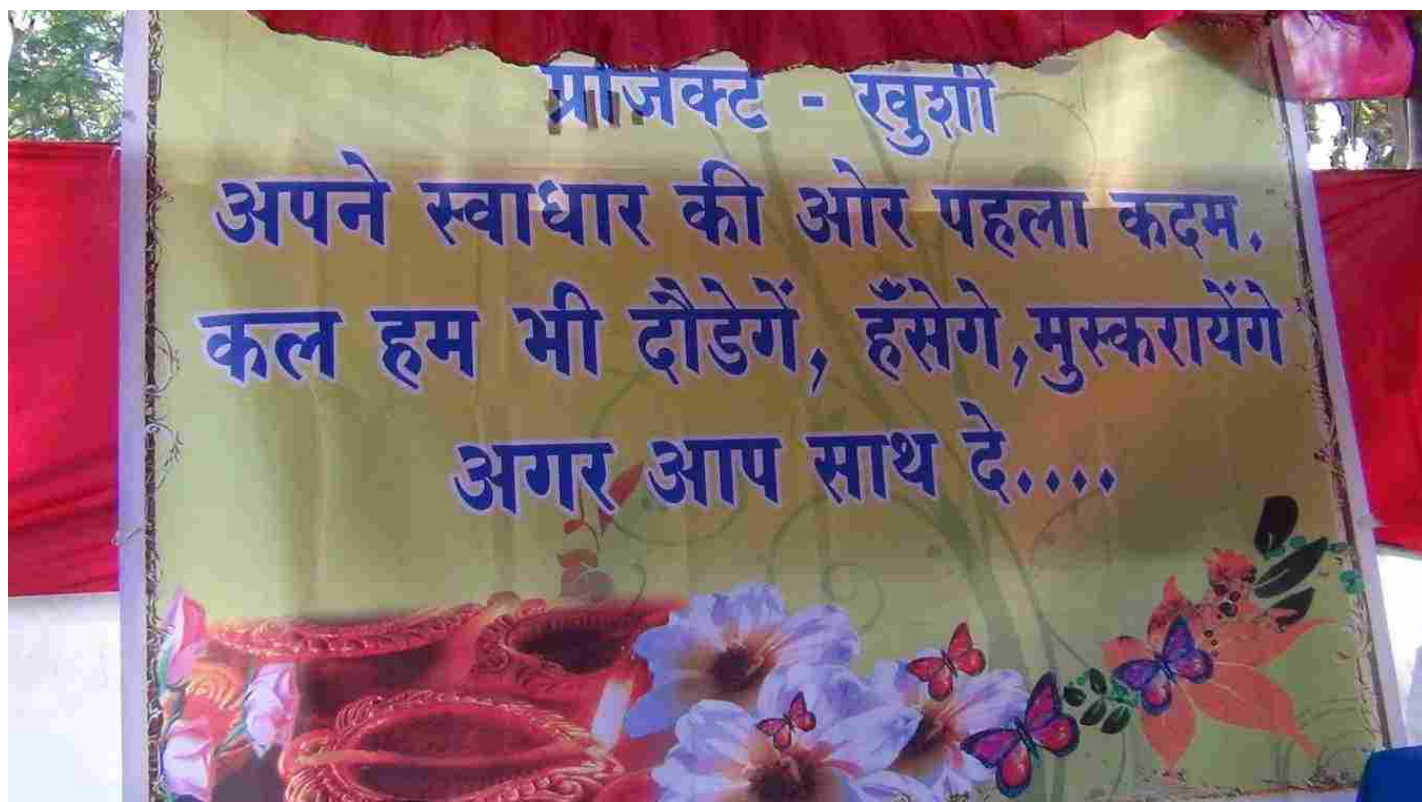 प्रोजेक्ट - खुशी
अपने स्वाधार की ओर पहला कदम.
कल हम भी दौडेगें, हँसेगे,मुस्करायेंगे
अगर आप साथ दे....